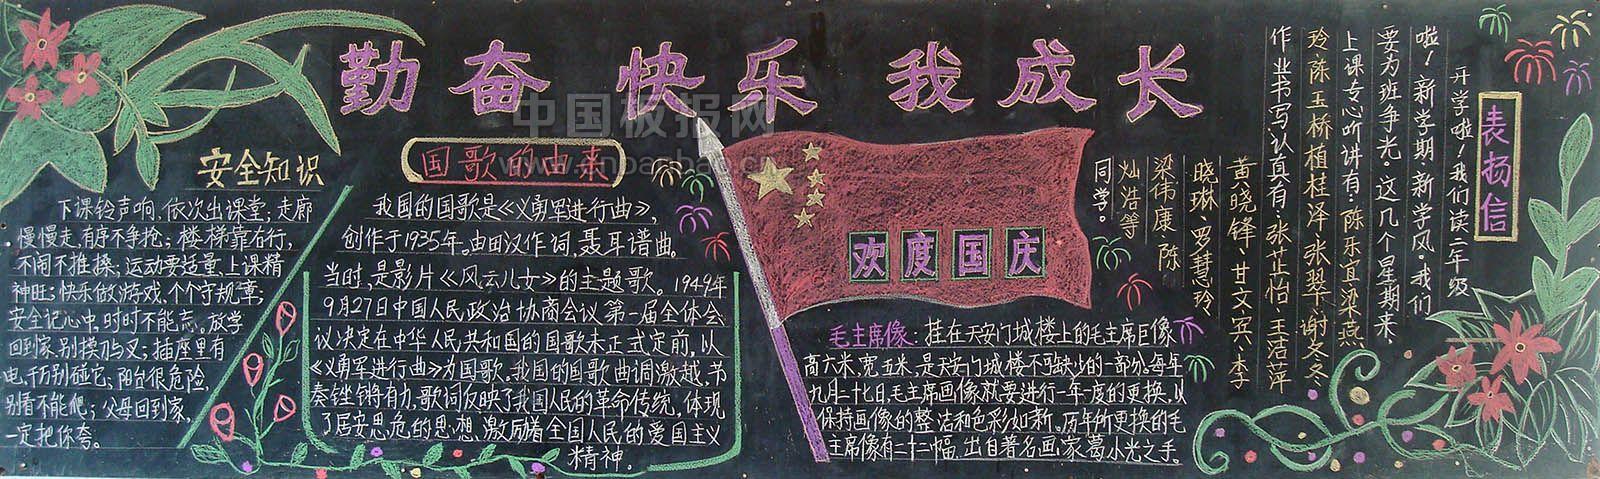 勤奋 快乐 我成长
中国板报网
www.cnbanbao.cn
安全知识
下课铃声响,依次出课堂;走廊
慢慢走,有序不争抢;楼梯靠右行,
不闹不推搡;运动要适量,上课精
神旺;快乐做游戏,个个守规章;
安全记心中,时时不能忘。放学
回到家,别摸刀与叉;插座里有
电,千万别碰它;阳台很危险,
别看不能爬;父母回到家,
一定把你夸。
国歌的由来
我国的国歌是《义勇军进行曲》,
创作于1935年。由田汉作词,聂耳谱曲。
当时,是影片《风云儿女》的主题歌。1949年
9月27日中国人民政治协商会议第一届全体会
议决定在中华人民共和国的国歌未正式定前,以
《义勇军进行曲》为国歌。我国的国歌曲调激越,节
奏铿锵有力,歌词反映了我国人民的革命传统,体现
了居安思危的思想,激励着全国人民的爱国主义
精神。
欢度国庆
毛主席像:挂在天安门城楼上的毛主席巨像
高六米,宽五米,是天安门城楼不可缺少的一部分。每年
九月二十七日,毛主席画像就要进行一年一度的更换,以
保持画像的整洁和色彩如新。历年所更换的毛
主席像有二十一幅,出自著名画家葛小光之手。
表扬信
开学啦!我们读二年级
啦!新学期,新学风。我们
要为班争光。这几个星期来,
上课专心听讲有:陈乐宜、梁燕
玲、陈玉桥、植桂泽、张翠、谢冬冬
作业书写认真有:张芷怡、王洁萍
黄晓锋、甘文宾、李
晓琳、罗慧玲
梁伟康、陈
灿浩等
同学。